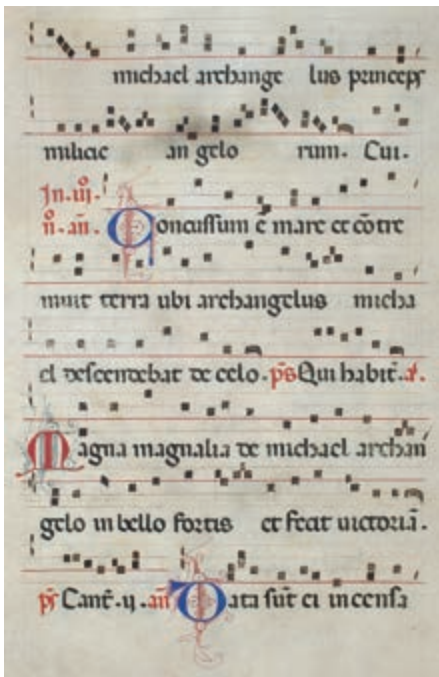 michael archange lus princeps
milicie an gelo rum. Cui.
In. iii.
n. añ. Concussum ē mare et cōtre
muit terra ubi archangelus micha
el descendebat de celo. p̄s Qui habit̄. a.
Magna magnalia de michael archan
gelo in bello fortis et fecit uictoriā.
p̄s Cant̄. ij. añ Data sūt ei incensa